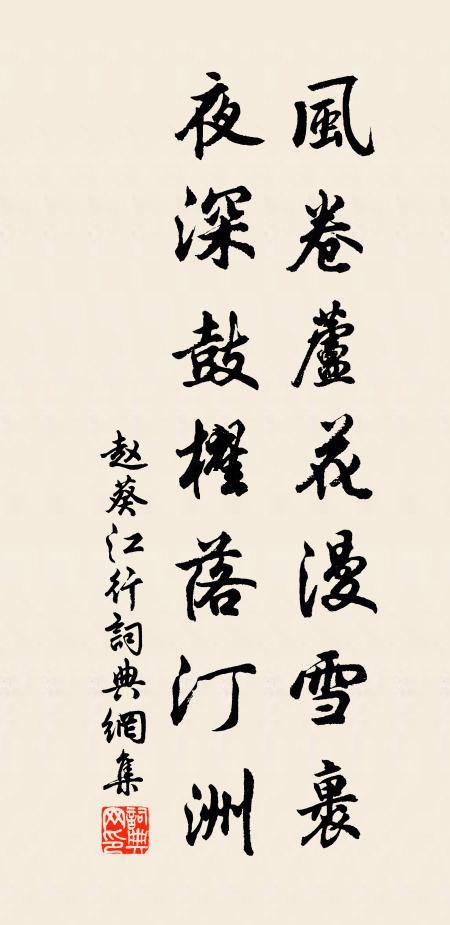 風卷蘆花漫雪裹
夜深鼓櫂落汀洲
赵葵江行詞典網集
詞典网印